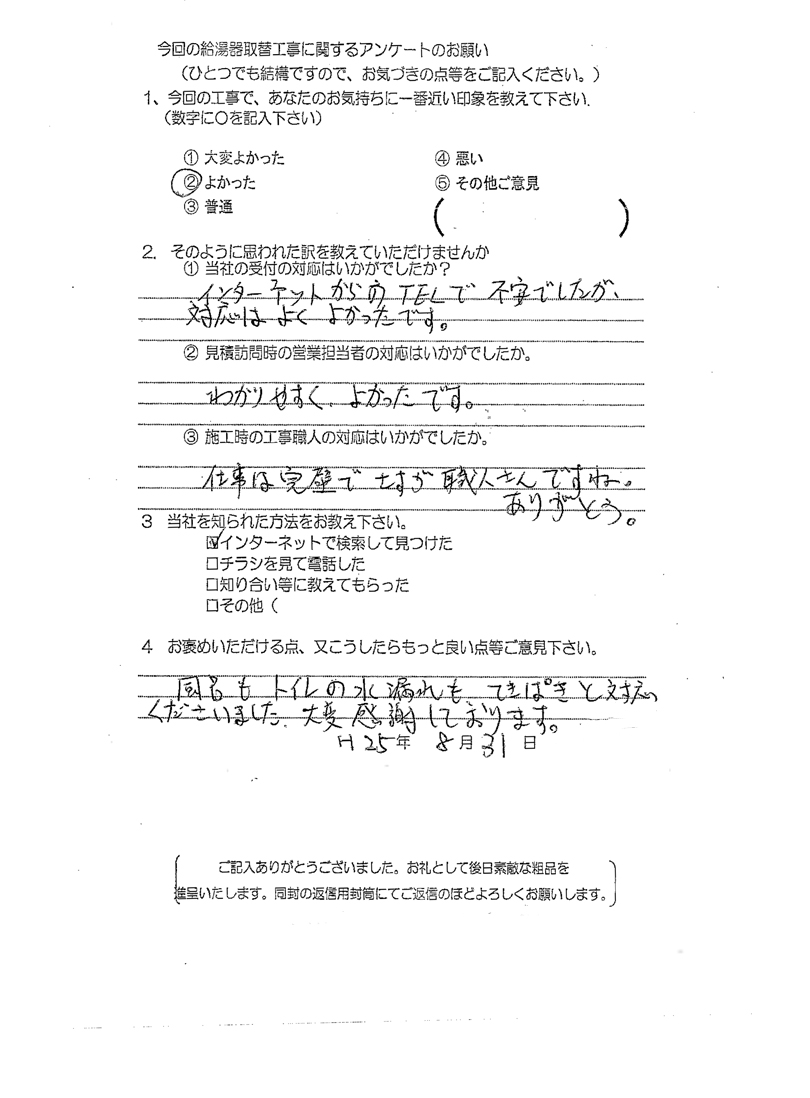 今回の給湯器取替工事に関するアンケートのお願い
(ひとつでも結構ですので、お気づきの点等をご記入ください。)
1、今回の工事で、あなたのお気持ちに一番近い印象を教えて下さい.
(数字に〇を記入下さい)
① 大変よかった ④ 悪い
② よかった ⑤ その他ご意見
③ 普通 ( )
2. そのように思われた訳を教えていただけませんか
① 当社の受付の対応はいかがでしたか?
インターネットからの TELで 不安でしたが、
対応は よく よかったです。
② 見積訪問時の営業担当者の対応はいかがでしたか。
わかりやすく、よかったです。
③ 施工時の工事職人の対応はいかがでしたか。
仕事は完璧で さすが 職人さんですね。
ありがとう。
3 当社を知られた方法をお教え下さい。
☑インターネットで検索して見つけた
□チラシを見て電話した
□知り合い等に教えてもらった
□その他 (
4 お褒めいただける点、又こうしたらもっと良い点等ご意見下さい。
も トイレの水漏れも てきぱきと対応
くださいました。大変感謝しております。
H 25年 8月 31日
ご記入ありがとうございました。お礼として後日素敵な粗品を
進呈いたします。同封の返信用封筒にてご返信のほどよろしくお願いします。